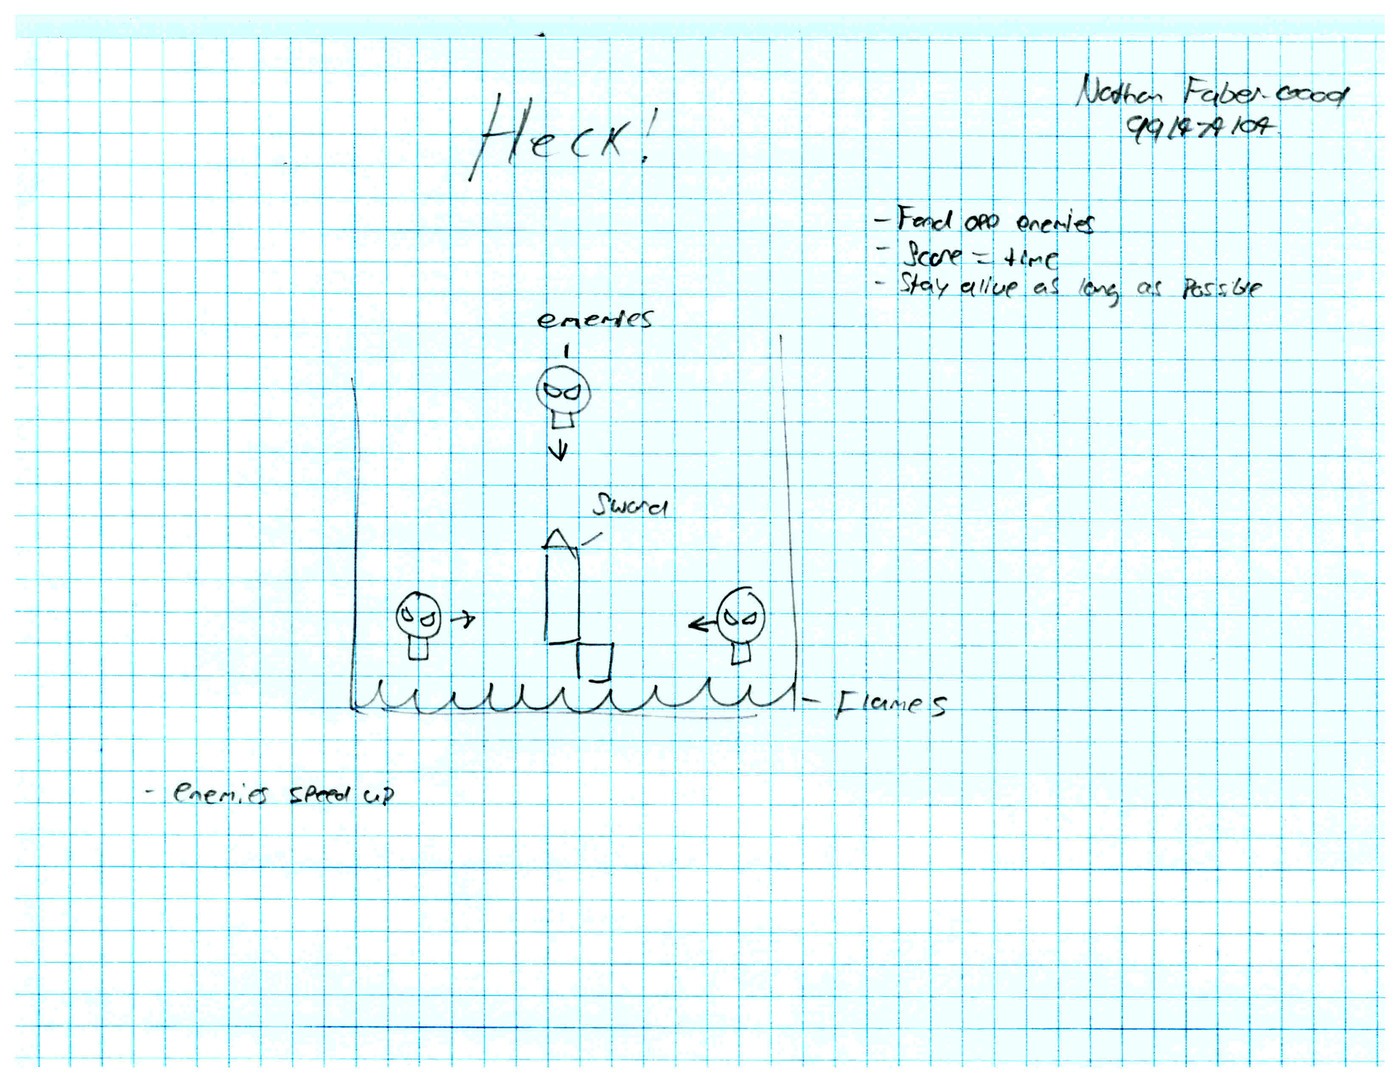 Heck!
Nathan Faber-Good
- Fend off enemies
- Score = time
- Stay alive as long as possible
enemies
Sword
- Flames
- enemies speed up